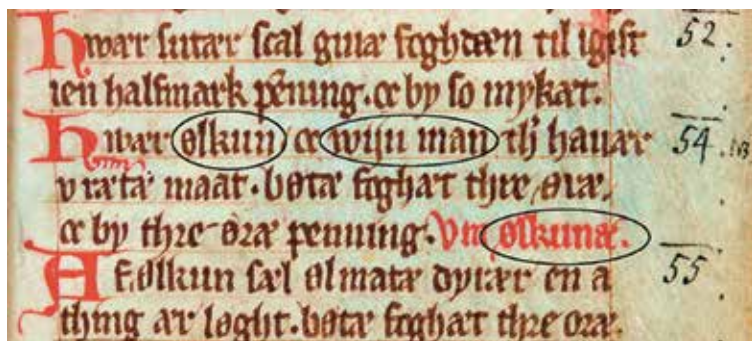 Hwær sutær scal giuæ foghdæn til igift 52.
ien halfmark pening. oc by so mykæt.
Hwær ølkun oc wiin man th hauær 54.
vrætæ maat. bøtæ foghæt thre øræ.
oc by thre øræ penning. Vm ølkunæ.
Æ Ølkun sæl ølmatæ dyrær en a 55
thing ær loght. bøtæ foghæt thre øræ.